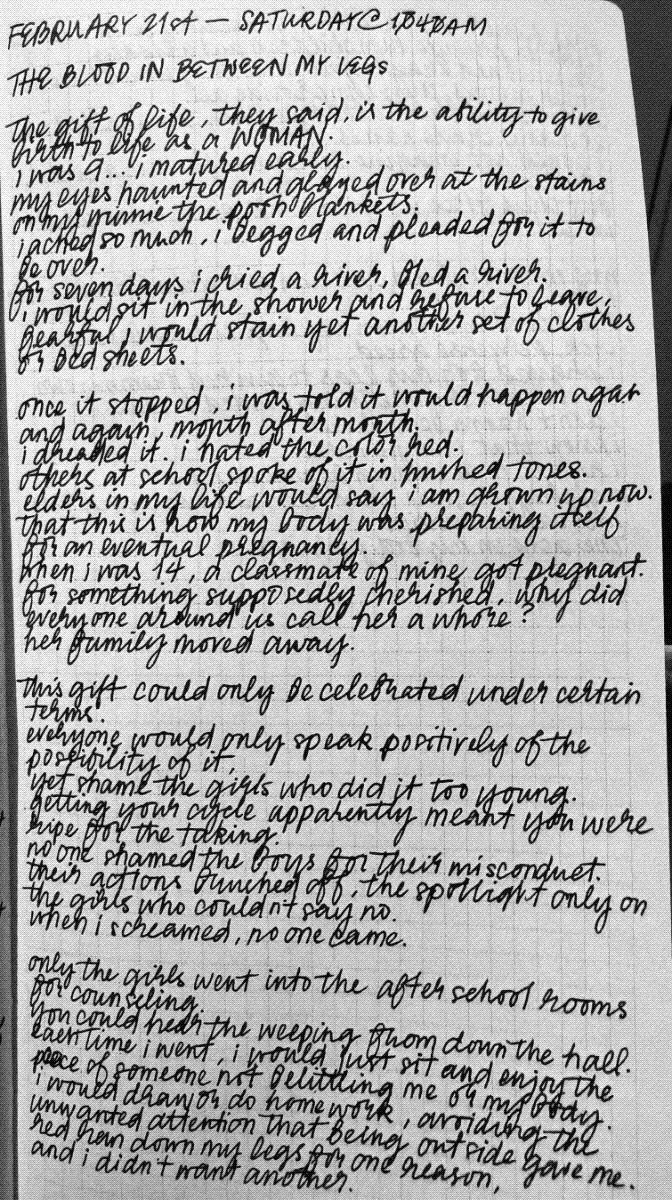 FEBRUARY 21st — SATURDAY @ 1:04AM
THE BLOOD IN BETWEEN MY LEGS
the gift of life, they said, is the ability to give
birth to life as a WOMAN.
i was 9... i matured early.
my eyes haunted and glazed over at the stains
on my winnie the pooh blankets.
i ached so much, i begged and pleaded for it to
be over.
for seven days i cried a river, bled a river.
i would sit in the shower and refuse to leave,
fearful i would stain yet another set of clothes
or bed sheets.
once it stopped, i was told it would happen again
and again, month after month.
i dreaded it. i hated the color red.
others at school spoke of it in hushed tones.
elders in my life would say i am grown up now.
that this is how my body was preparing itself
for an eventual pregnancy.
when i was 14, a classmate of mine got pregnant.
for something supposedly cherished, why did
everyone around us call her a whore?
her family moved away.
this gift could only be celebrated under certain
terms.
everyone would only speak positively of the
possibility of it,
yet shame the girls who did it too young.
getting your cycle apparently meant you were
ripe for the taking.
no one shamed the boys for their misconduct.
their actions brushed off, the spotlight only on
the girls who couldn't say no.
when i screamed, no one came.
only the girls went into the after school rooms
for counseling.
you could hear the weeping from down the hall.
each time i went, i would just sit and enjoy the
peace of someone not belittling me or my body.
i would draw or do homework, avoiding the
unwanted attention that being outside gave me.
red ran down my legs for one reason,
and i didn't want another.